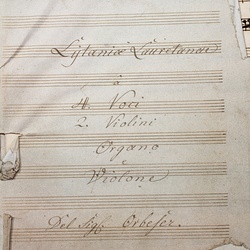 Lytaniæ Lauretanae
à
4. Voci
2. Violini
Organo
e
Violone
Del Sig: